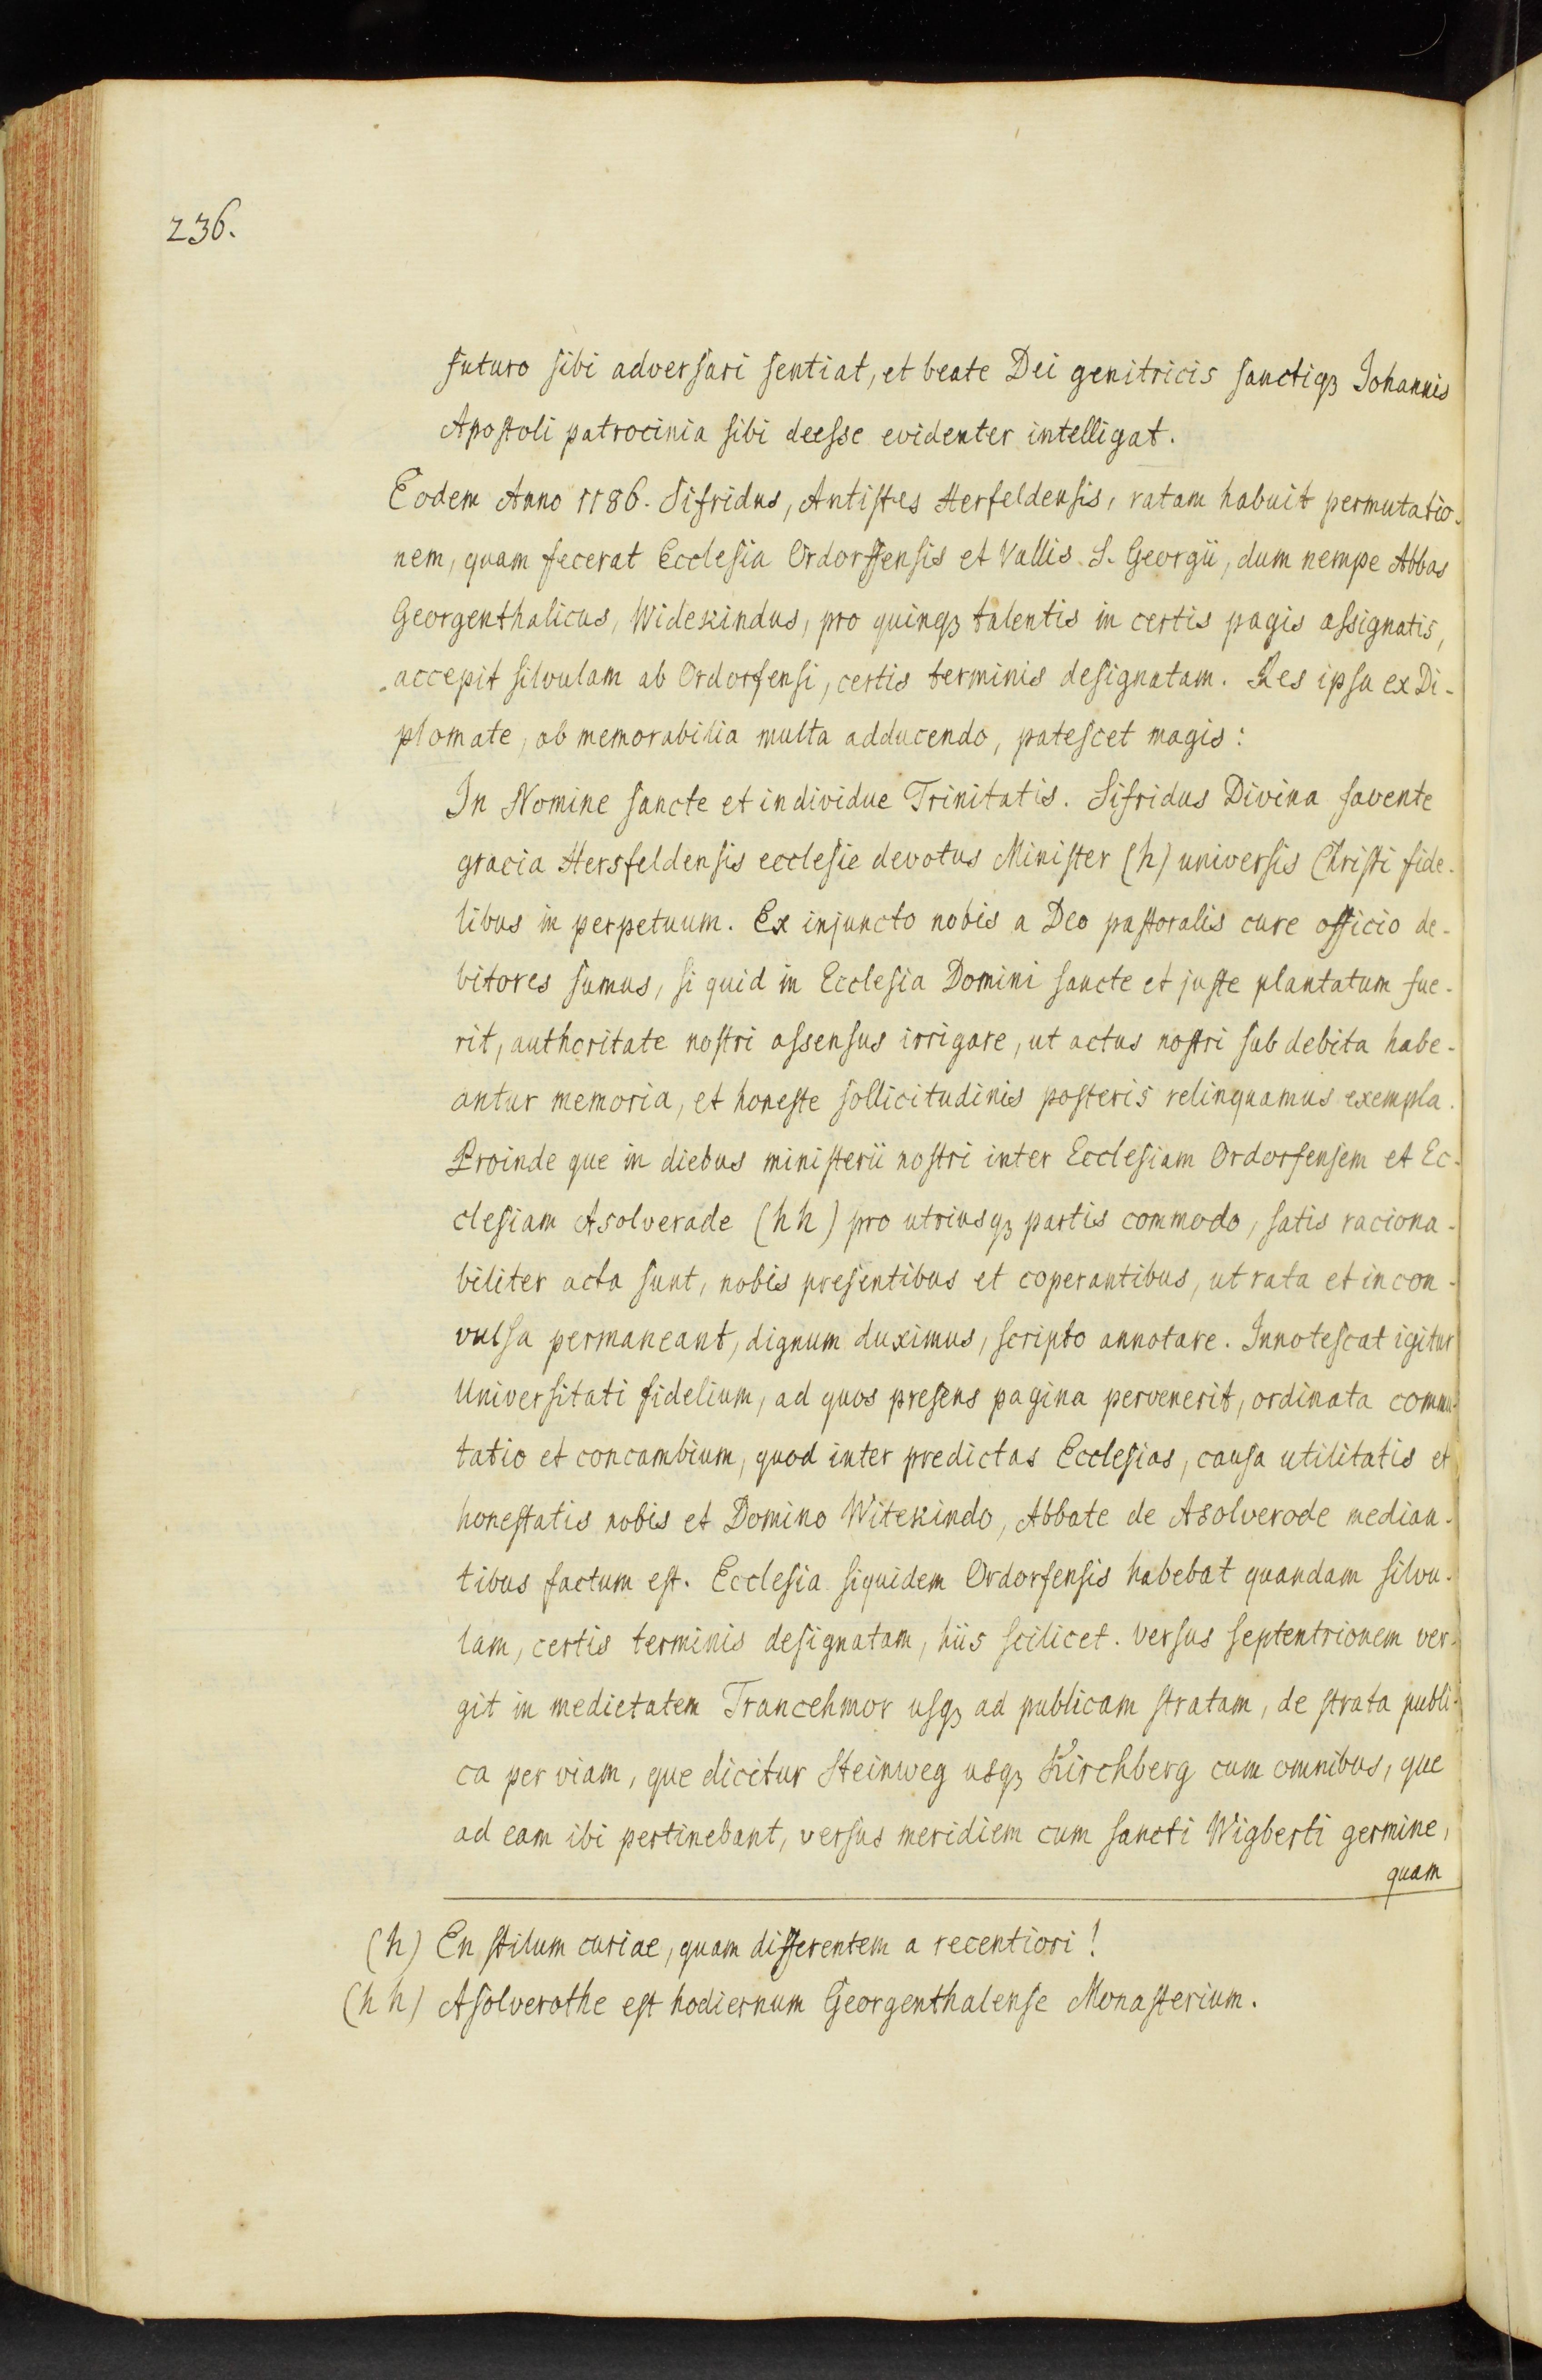 236.
futuro sibi adversari sentiat, et beate Dei genitricis sanctiqꝫ Johannis
Apostoli patrocinia sibi deesse evidenter intelligat.
Eodem Anno 1186. Sifridus, Antistes Herfeldensis, ratam habuit permutatio-
nem, quam fecerat Ecclesia Ordorffensis et Vallis S. Georgii, dum nempe Abbas
Georgenthalicus, Widekindus, pro quinqꝫ talentis in certis pagis assignatis,
accepit silvulam ab Ordorfensi, certis terminis designatam. Res ipsa ex Di-
plomate, ob memorabilia multa adducendo, patescet magis:
In Nomine sancte et individue Trinitatis. Sifridus Divina favente
gracia Hersfeldensis ecclesie devotus Minister (h) universis Christi fide-
libus in perpetuum. Ex injuncto nobis a Deo pastoralis cure officio de-
bitores sumus, si quid in Ecclesia Domini sancte et juste plantatum fue-
rit, authoritate nostri assensus irrigare, ut actus nostri sub debita habe-
antur memoria, et honeste sollicitudinis posteris relinquamus exempla.
Proinde que in diebus ministerii nostri inter Ecclesiam Ordorfensem et Ec-
clesiam Asolverade (hh) pro utriusqꝫ partis commodo, satis raciona-
biliter acta sunt, nobis presentibus et coperantibus, ut rata et incon-
vulsa permaneant, dignum duximus, scripto annotare. Innotescat igitur
Universitati fidelium, ad quos presens pagina pervenerit, ordinata commu-
tatio et concambium, quod inter predictas Ecclesias, causa utilitatis et
honestatis nobis et Domino Witekindo, Abbate de Asolverode median-
tibus factum est. Ecclesia siquidem Ordorfensis habebat quandam silvu-
lam, certis terminis designatam, hiis scilicet. versus septentrionem ver-
git in medietatem Trancehmor usqꝫ ad publicam stratam, de strata publi-
ca per viam, que dicitur Steinweg usqꝫ Kirchberg cum omnibus, que
ad eam ibi pertinebant, versus meridiem cum sancti Wigberti germine,
quam
(h) En stilum curiae, quam differentem a recentiori!
(hh) Asolverothe est hodiernum Georgenthalense Monasterium.